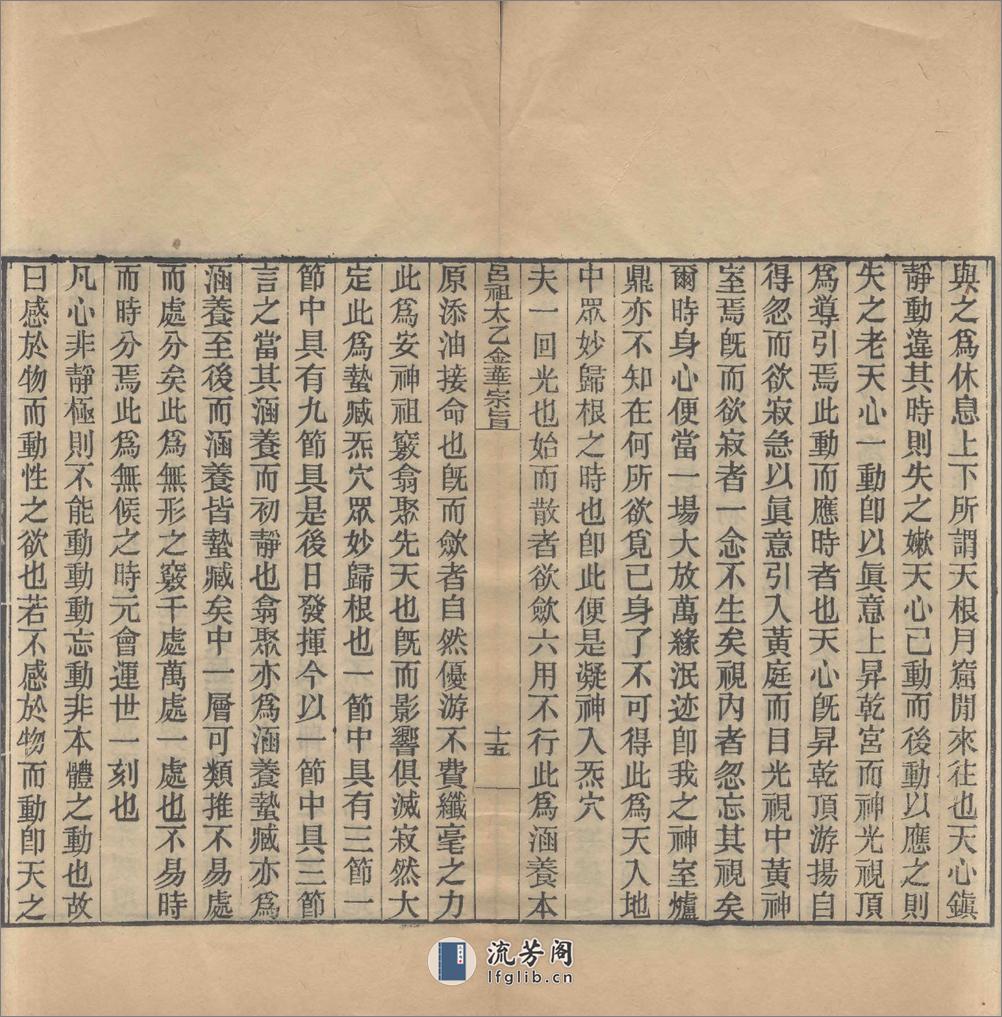 與之爲休息上下所謂天根月窟閒來往也天心鎮
靜動違其時則失之嫩天心已動而後動以應之則
失之老天心一動卽以眞意上昇乾宮而神光視頂
爲導引焉此動而應時者也天心旣昇乾頂游揚自
得忽而欲寂急以眞意引入黃庭而目光視中黃神
室焉旣而欲寂者一念不生矣視內者忽忘其視矣
爾時身心便當一場大放萬緣泯迹卽我之神室爐
鼎亦不知在何所欲覓已身了不可得此爲天入地
中眾妙歸根之時也卽此便是凝神入炁穴
夫一回光也始而散者欲斂六用不行此爲涵養本
呂祖太乙金華宗旨
十五
原添油接命也旣而斂者自然優游不費纖毫之力
此爲安神祖竅翕聚先天也旣而影響俱滅寂然大
定此爲蟄藏炁穴眾妙歸根也一節中具有三節一
節中具有九節具是後日發揮今以一節中具三節
言之當其涵養而初靜也翕聚亦爲涵養蟄藏亦爲
涵養至後而涵養皆蟄藏矣中一層可類推不易處
而處分矣此爲無形之竅千處萬處一處也不易時
而時分焉此爲無候之時元會運世一刻也
凡心非靜極則不能動動動忘動非本體之動也故
曰感於物而動性之欲也若不感於物而動卽天之
流芳阁
lfglib.cn